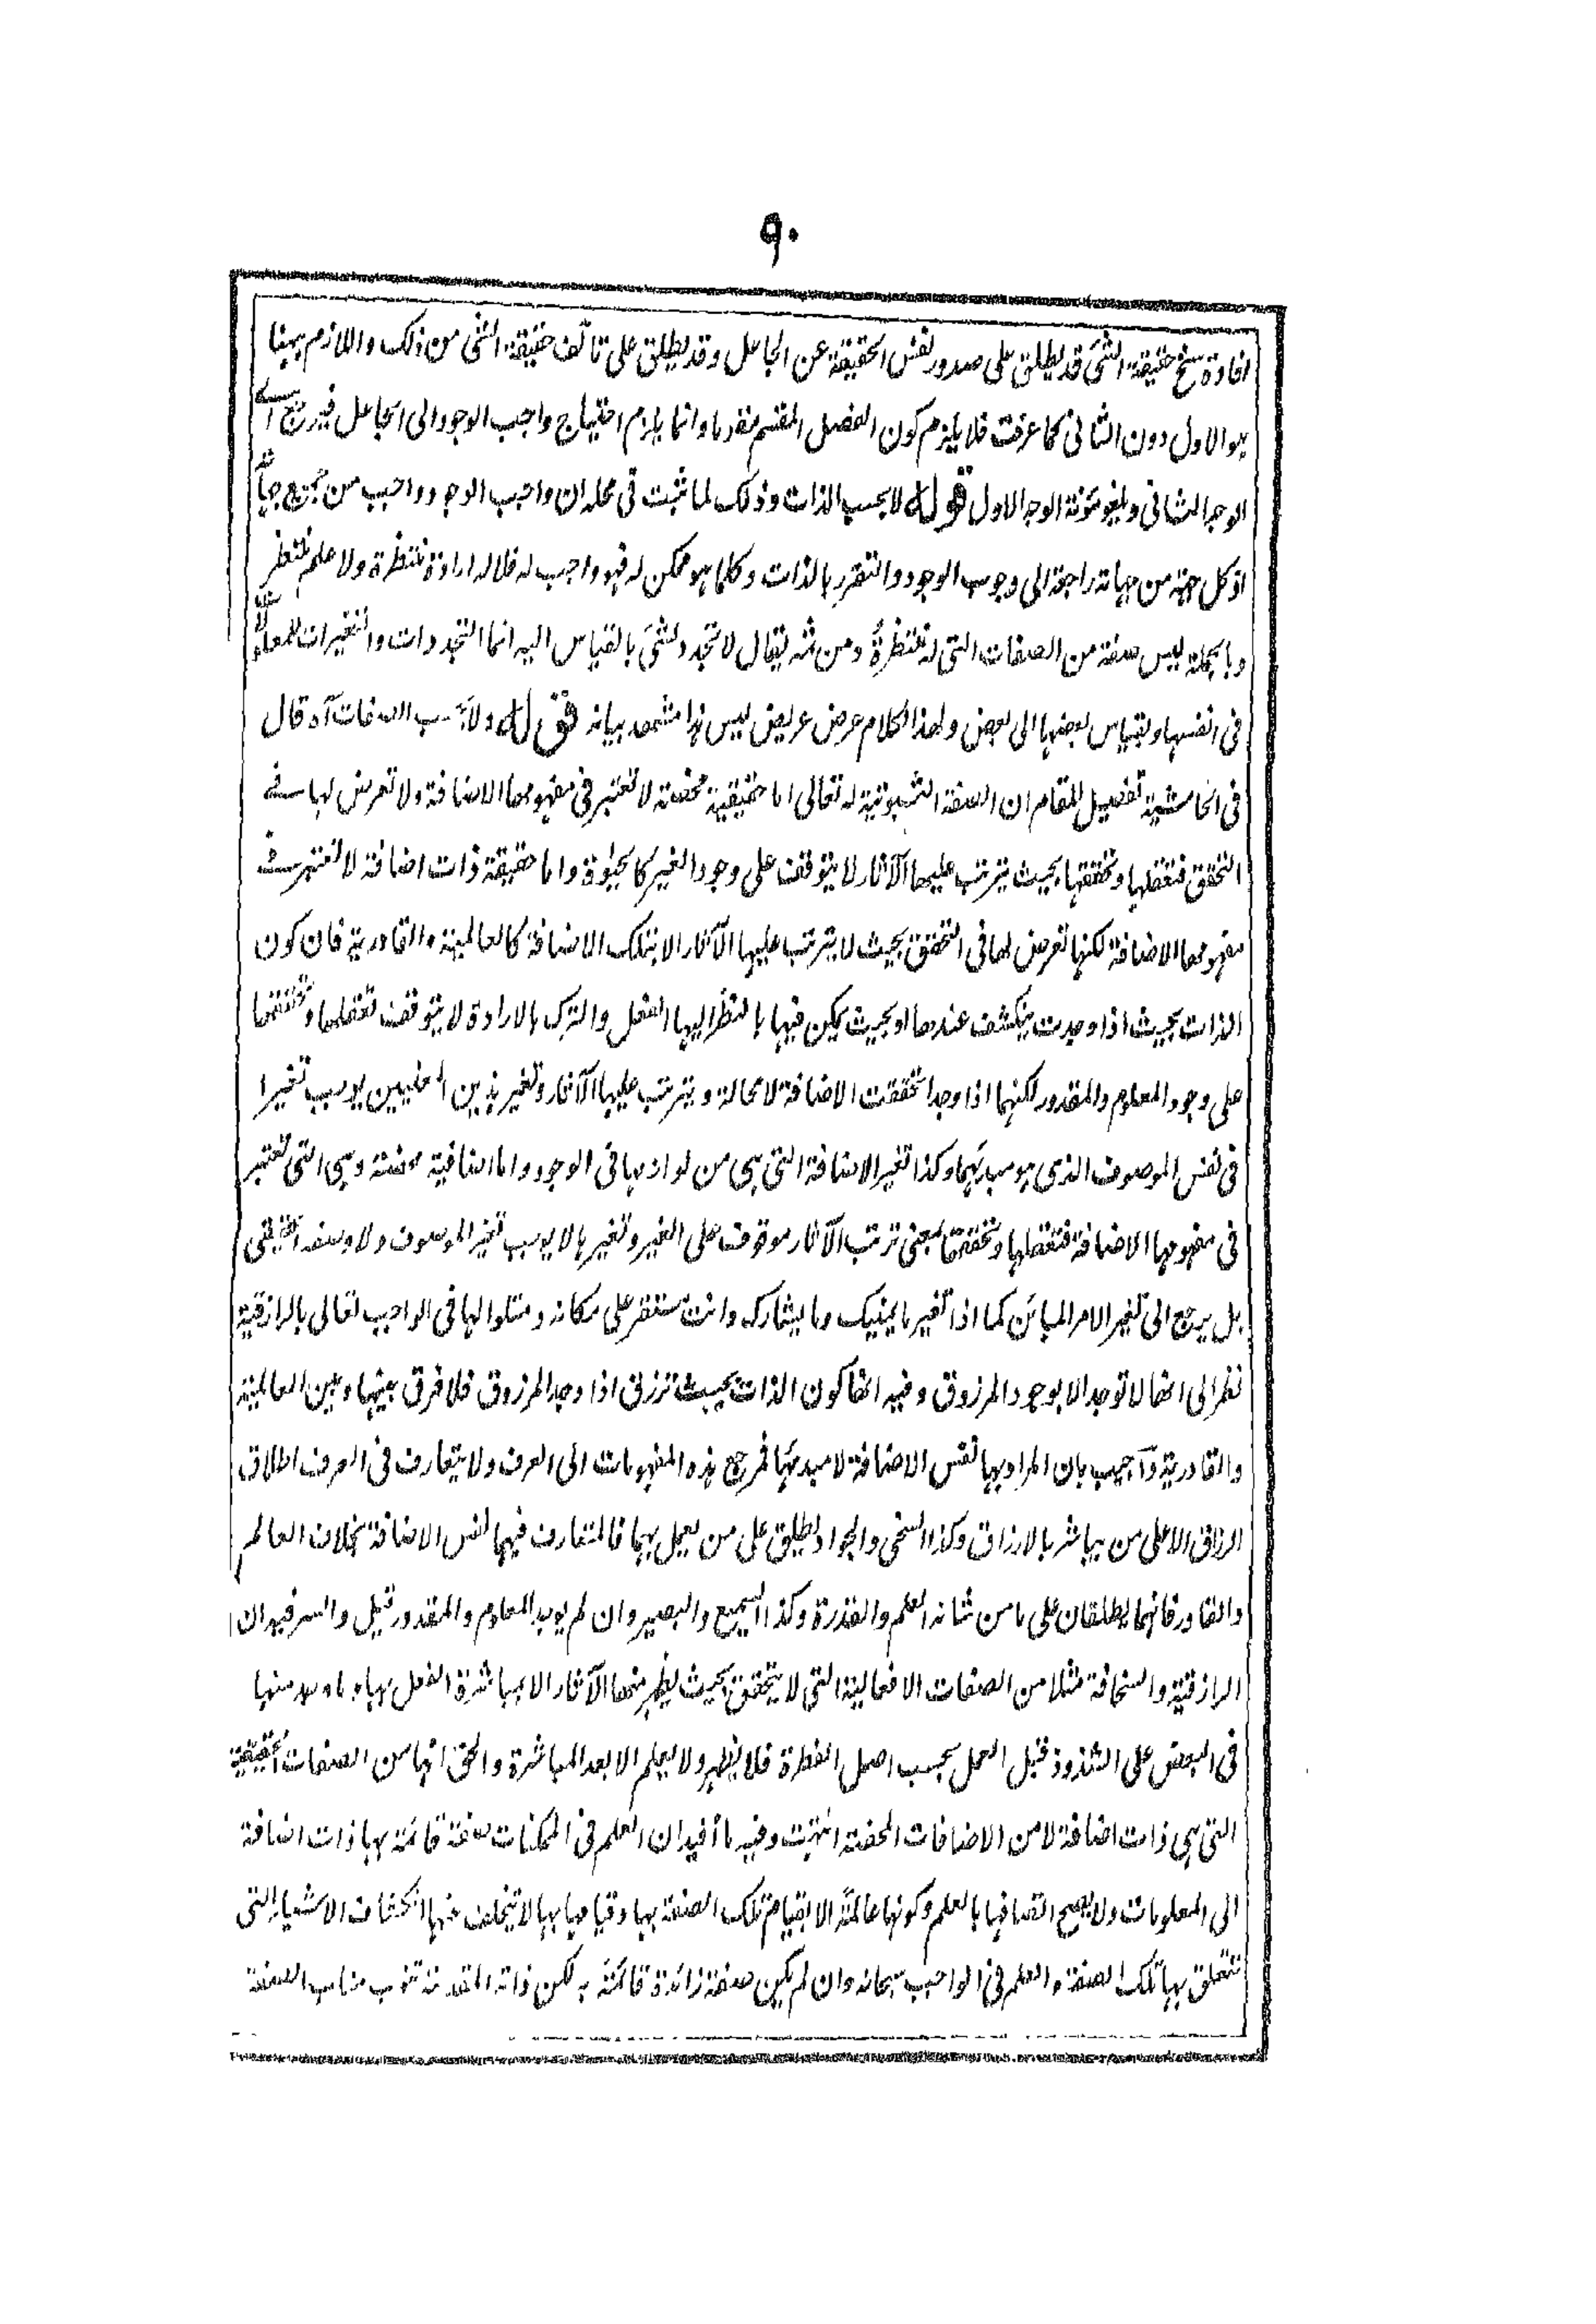 ٩٠
افادة سنخ حقيقة الشئ قد يطلق على صدور نفس الحقيقة عن الجاعل وقد يطلق على تألف حقيقة الشئ من ذلك واللازم ههنا
هو الاول دون الثانى كما عرفت فلا يلزم كون الفصل المقسم مقوما وانما يلزم احتياج واجب الوجود الى الجاعل فيرجع الى
الوجه الثانى ويلغو مؤنة الوجه الاول قوله لا بحسب الذات وذلك لما ثبت فى محله ان واجب الوجود واجب من جميع جهاته
اذ كل جهة من جهاته راجعة الى وجوب الوجود والتقرر بالذات وكلما هو ممكن له فهو واجب له فلا له ارادة منتظرة ولا علم منتظر
وبالجملة ليس صفة من الصفات التى له منتظرة ومن ثمه يقال لا تجدد لشئ بالقياس اليه انما التجددات والتغيرات للمعلولات
فى انفسها وبقياس بعضها الى بعض ولهذا الكلام عرض عريض ليس هذا مشهد بيانه قوله ولا بحسب الصفات آه قال
فى الحاشية تفصيل المقام ان الصفة الثبوتية له تعالى اما حقيقية محضة لا تعتبر فى مفهومها الاضافة ولا تعرض لها فى
التحقق فتعقلها وتحققها بحيث يترتب عليها الآثار لا يتوقف على وجود الغير كالحيوة واما حقيقة ذات اضافة لا تعتبر فى
مفهومها الاضافة لكنها تعرض لها فى التحقق بحيث لا يترتب عليها الآثار الا بتلك الاضافة كالعالمية والقادرية فان كون
الذات بحيث اذا وجدت ينكشف عندها او بحيث يمكن فيها بالنظر اليها الفعل والترك بالارادة لا يتوقف تعقلها وتحققها
على وجود المعلوم والمقدور لكنهما اذا وجدا تحققت الاضافة لا محالة ويترتب عليها الآثار وتغير هذين المعنيين يوجب تغيرا
فى نفس الموصوف الذى هو مبدئهما وكذا تغير الاضافة التى هى من لوازمها فى الوجود واما اضافية محضة وهى التى تعتبر
فى مفهومها الاضافة فتعقلها وتحققها بمعنى ترتب الآثار موقوف على الغير وتغيرها لا يوجب تغير الموصوف ولا وصفه الحقيقى
بل يرجع الى تغير الامر المباين كما اذا تغير ما يمينك وما يشارك وانت مستقر على مكانه ومثلوا لها فى الواجب تعالى بالرازقية
نظرا الى انها لا توجد الا بوجود المرزوق وفيه انها كون الذات بحيث ترزق اذا وجد المرزوق فلا فرق بينها وبين العالمية
والقادرية وآجيب بان المراد بها نفس الاضافة لا مبدئها فمرجع هذه المفهومات الى العرف ولا يتعارف فى العرف اطلاق
الرزاق الا على من يباشر بالارزاق وكذا السخى والجواد يطلق على من يعمل بهما فالمتعارف فيهما نفس الاضافة بخلاف العالم
والقادر فانهما يطلقان على ما من شانه العلم والقدرة وكذا السميع والبصير وان لم يوجد المعلوم والمقدور قيل والسر فيه ان
الرازقية والسخافة مثلا من الصفات الافعالية التى لا يتحقق بحيث يظهر منها الآثار الا بمباشرة الفعل بها وما منها
فى البعض على الشذوذ قبل العمل بحسب اصل الفطرة فلا يظهر ولا يعلم الا بعد المباشرة والحق انها من الصفات الحقيقية
التى هى ذات اضافة لا من الاضافات المحضة انتهت وفيه ما أفيد ان العلم فى الممكنات صفة قائمة بها ذات اضافة
الى المعلومات ولا يصح اتصافها بالعلم وكونها عالمة الا بقيام تلك الصفة بها وقيامها بها لا يتخلف عنها انكشاف الاشياء التى
تتعلق بها تلك الصفة والعلم فى الواجب سبحانه وان لم يكن صفة زائدة قائمة به لكن ذاته المقدسة تنوب مناب الصفة